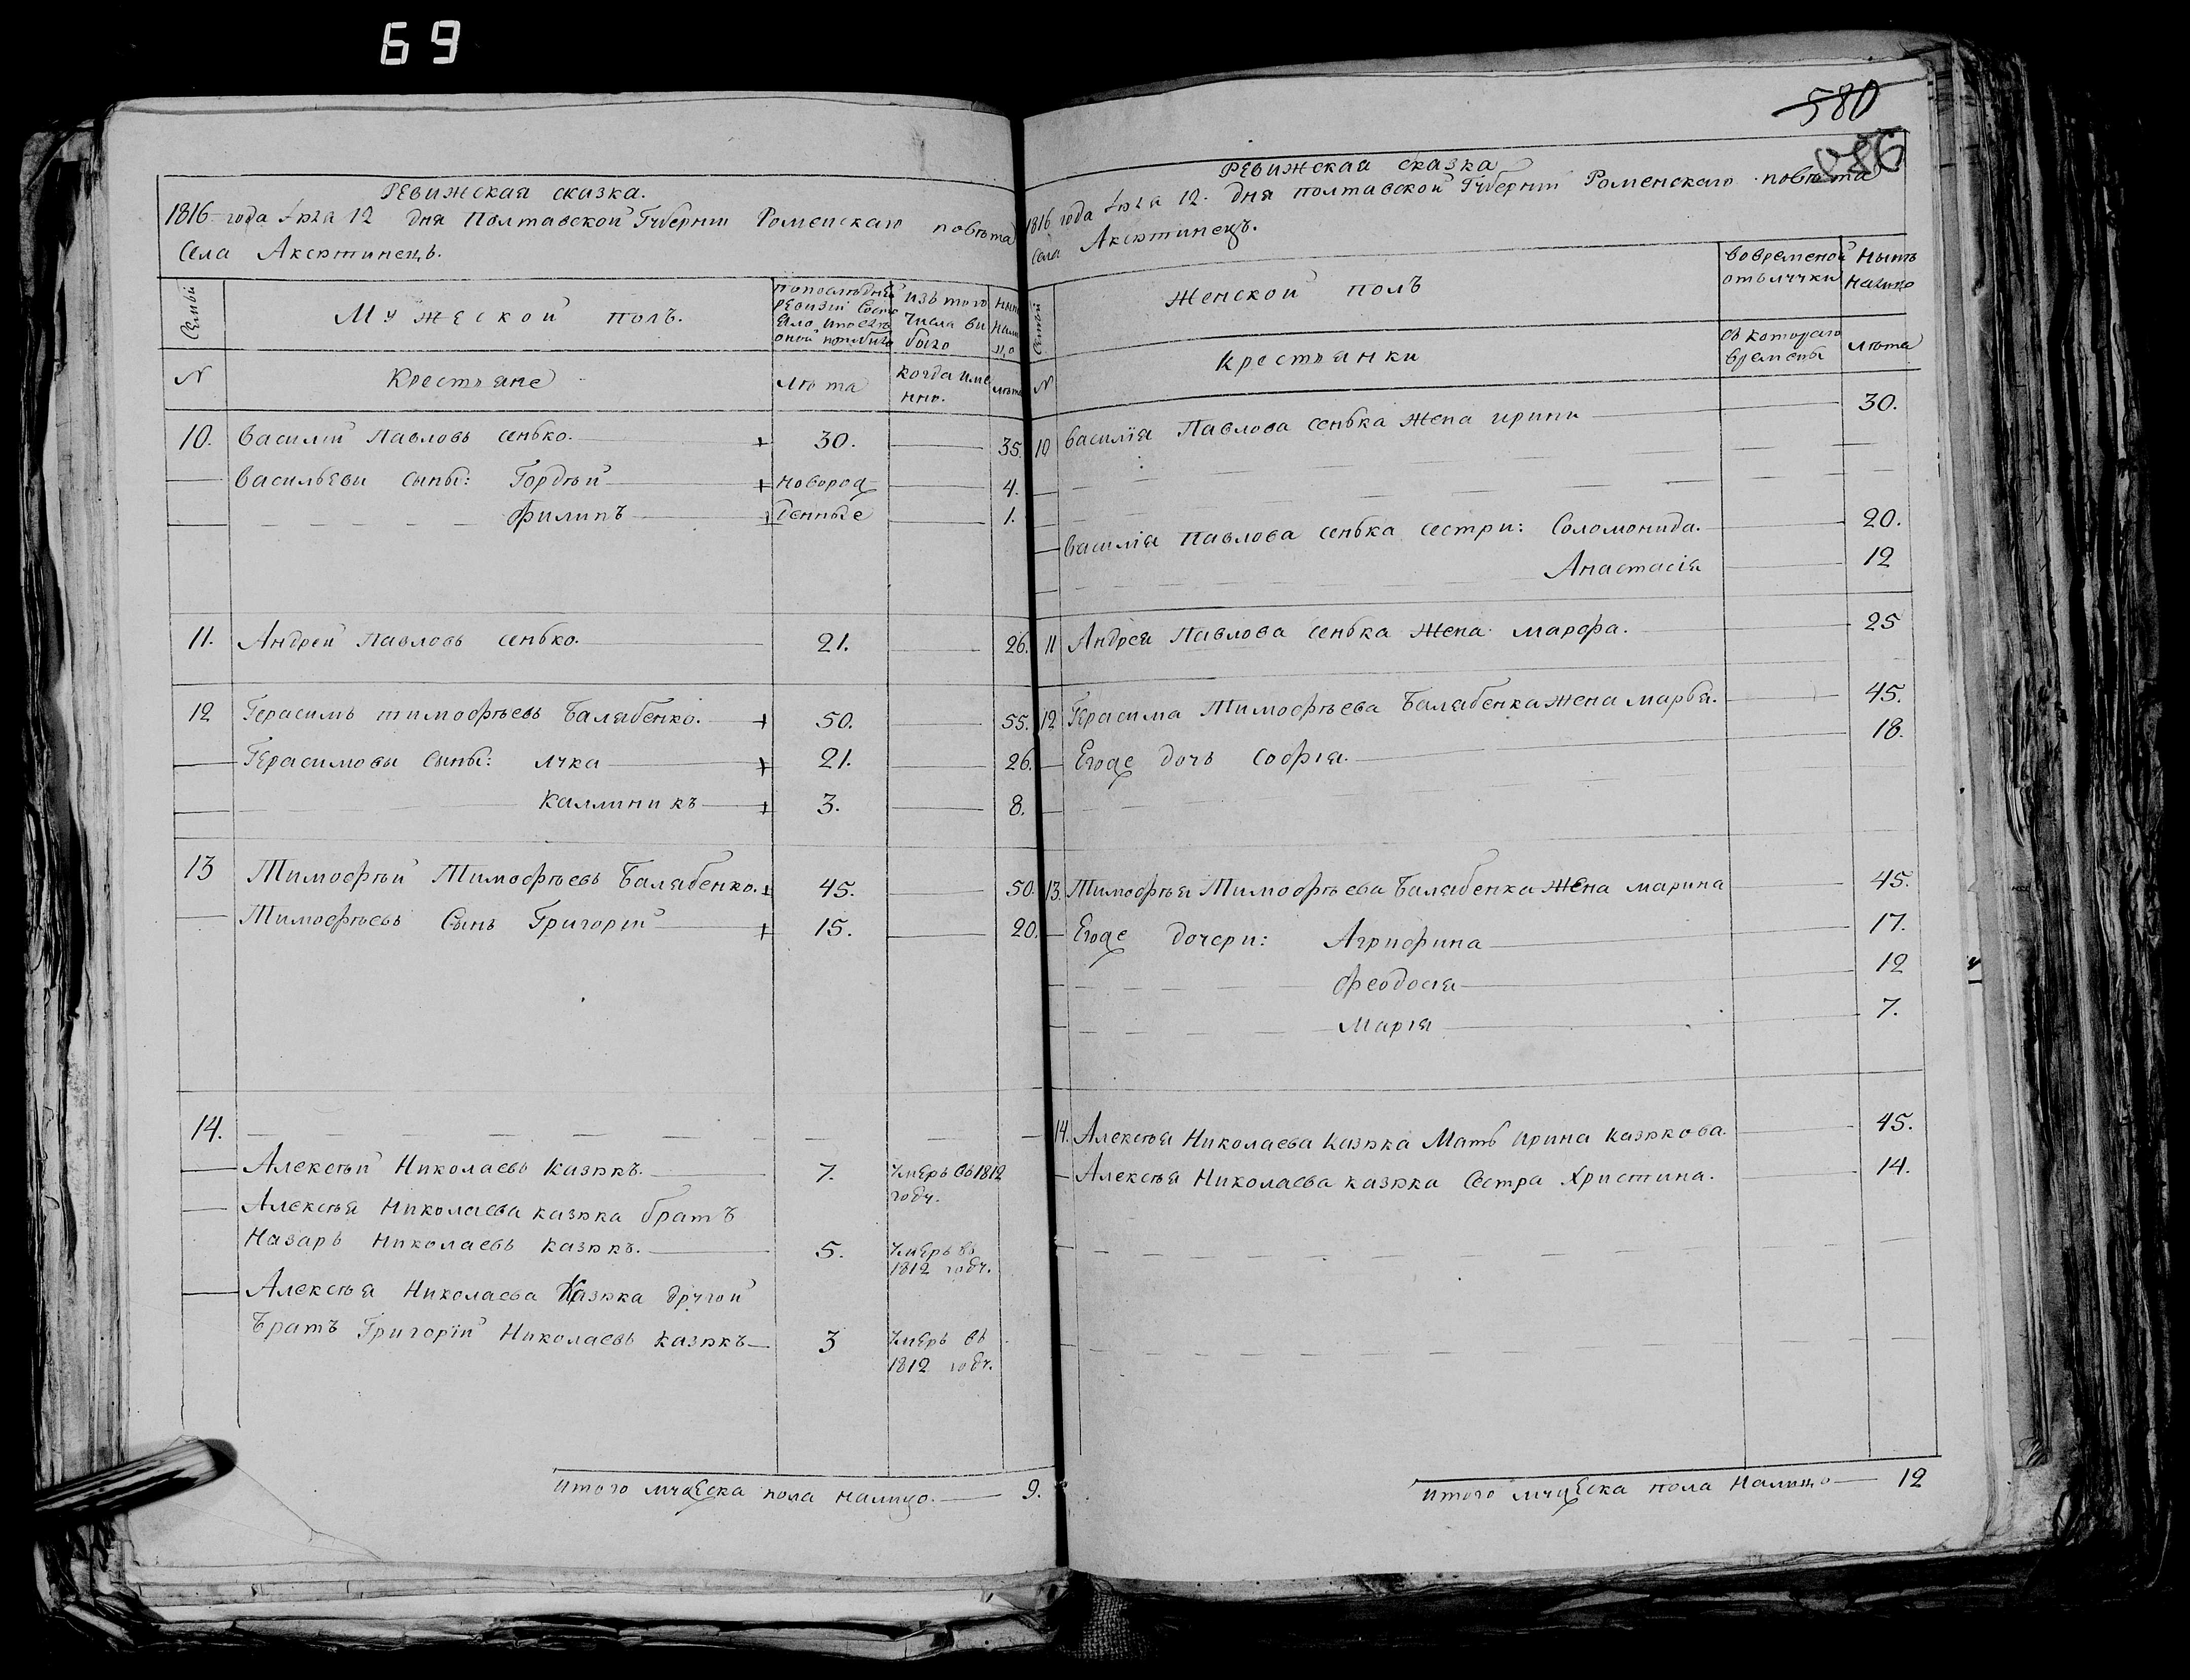 69
Ревижская сказка.
1816 года Июля 12 дня Полтавской Губернии Роменскаго повѣта
Села Аксютинецъ.
Семьи
Мужеской полъ.
по последней ревизии состояло, и после оной прибыло
изъ того числа выбыло
ныне налицо
N
Крестьяне
Лѣта
когда именно.
лѣта
10. Василій Павловъ сенько. 30. 35.
Васильеви сыны: Гордѣй новорож 4.
Филипъ денные 1.
11. Андрей Павловъ сенько. 21. 26.
12 Герасимъ тимофѣевъ Балябенко. 50. 55.
Герасимовы сыны: лука 21. 26.
Каллиникъ 3. 8.
13 Тимофѣй Тимофѣевъ Балябенко. 45. 50.
Тимофѣевъ Сынъ Григорій 15. 20.
14.
Алексѣй Николаевъ казюкъ. 7. умеръ въ 1812 году.
Алексѣя Николаева казюка братъ
Назаръ Николаевъ казюкъ. 5. умеръ въ 1812 году.
Алексѣя Николаева Казюка другой
братъ Григорій Николаевъ казюкъ 3 умеръ въ 1812 году.
итого мужеска пола налицо. 9.
580
Ревижская сказка
1816 года Июля 12. дня полтавской Губернии Роменскаго повѣта
Села Аксютинецъ.
Семьи
Женской полъ
во временой отълучки
Нынѣ налицо
N
Крестьянки
съ котораго времены
лѣта
10 Василія Павлова сенька жена ирини 30.
Василія Павлова сенька сестри: Соломонида. 20.
Анастасія 12
11 Андрея Павлова сенька жена марфа. 25
12 Герасима Тимофѣева Балябенка жена марья. 45.
Егоже дочь софія. 18.
13. Тимофѣя Тимофѣева Балябенка жена марина 45.
Егоже дочери: Агрифина 17.
Феодосія 12
Марія 7.
14. Алексѣя Николаева казюка Мать ирина казюкова. 45.
Алексѣя Николаева казюка сестра Христина. 14.
итого мужеска пола налицо 12